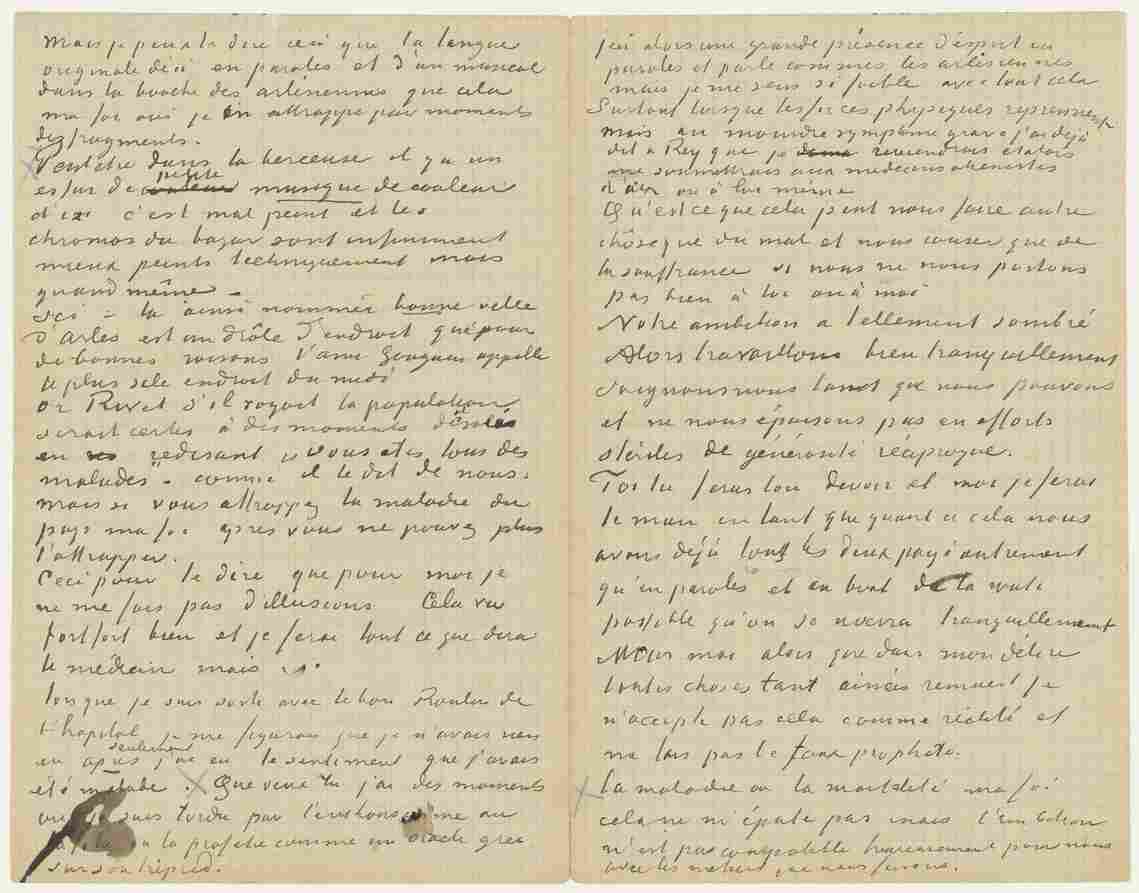 mais je peux te dire ceci que la langue
originale d'ici en paroles est d'un musical
dans la bouche des arlésiennes que cela
ma foi oui je en attrappe par moments
des fragments.
Peut être dans la berceuse il y a un
essai de petite musique de couleur
d'ici c'est mal peint et les
chromos du bazar sont infiniment
mieux peints techniquement mais
quand même –
Ici – la ainsi nommée bonne ville
d'Arles est un drôle d'endroit que pour
de bonnes raisons l'ami Gauguin appelle
le plus sale endroit du midi
or Rivet s'il voyait la population
serait certes à des moments désolé
en redisant vous etes tous des
malades" comme il le dit de nous.
mais si vous attrappez la maladie du
pays ma foi après vous ne pouvez plus
l'attrapper.
Ceci pour te dire que pour moi je
ne me fais pas d'illusions Cela va
fort fort bien et je ferai tout ce que dira
le médecin mais
lorsque je suis sorti avec le bon Roulin de
l'hopital je me figurais que je n'avais rien eu
après seulement j'ai eu le sentiment que j'avais
été malade. Que veux tu j'ai des moments
où je suis tordu par l'enthousiasme ou
la folie ou la prophétie comme un oracle grec
sur son trépied.
j'ai alors une grande présence d'esprit en
paroles et parle comme les arlésiennes
mais je me sens si faible avec tout cela
Surtout lorsque les forces physiques reprennent
mais au moindre symptome grave j'ai déjà
dit à Rey que je reviendrais et alors
me soumettrais aux medecins alienistes
d'Aix ou à lui même
Qu'est ce que cela peut nous faire autre
chôse que du mal et nous causer que de
la souffrance si nous ne nous portons
pas bien à toi ou à moi
Notre ambition a tellement sombré
Alors travaillons bien tranquillement
soignons nous tant que nous pouvons
et ne nous épuisons pas en efforts
stériles de générosité réciproque.
Toi tu feras ton devoir et moi je ferai
le mien en tant que quant à cela nous
avons déjà tout les deux payé autrement
qu'en paroles et au bout de la route
possible qu'on se reverra tranquillement
Mais moi alors que dans mon délire
toutes choses tant aimées remuent je
n'accepte pas cela comme réalité et
ne fais pas le faux prophète.
La maladie ou la mortalité ma foi
cela ne m'épate pas mais l'ambition
n'est pas compatible heureusement pour nous
avec les métiers que nous faisons.